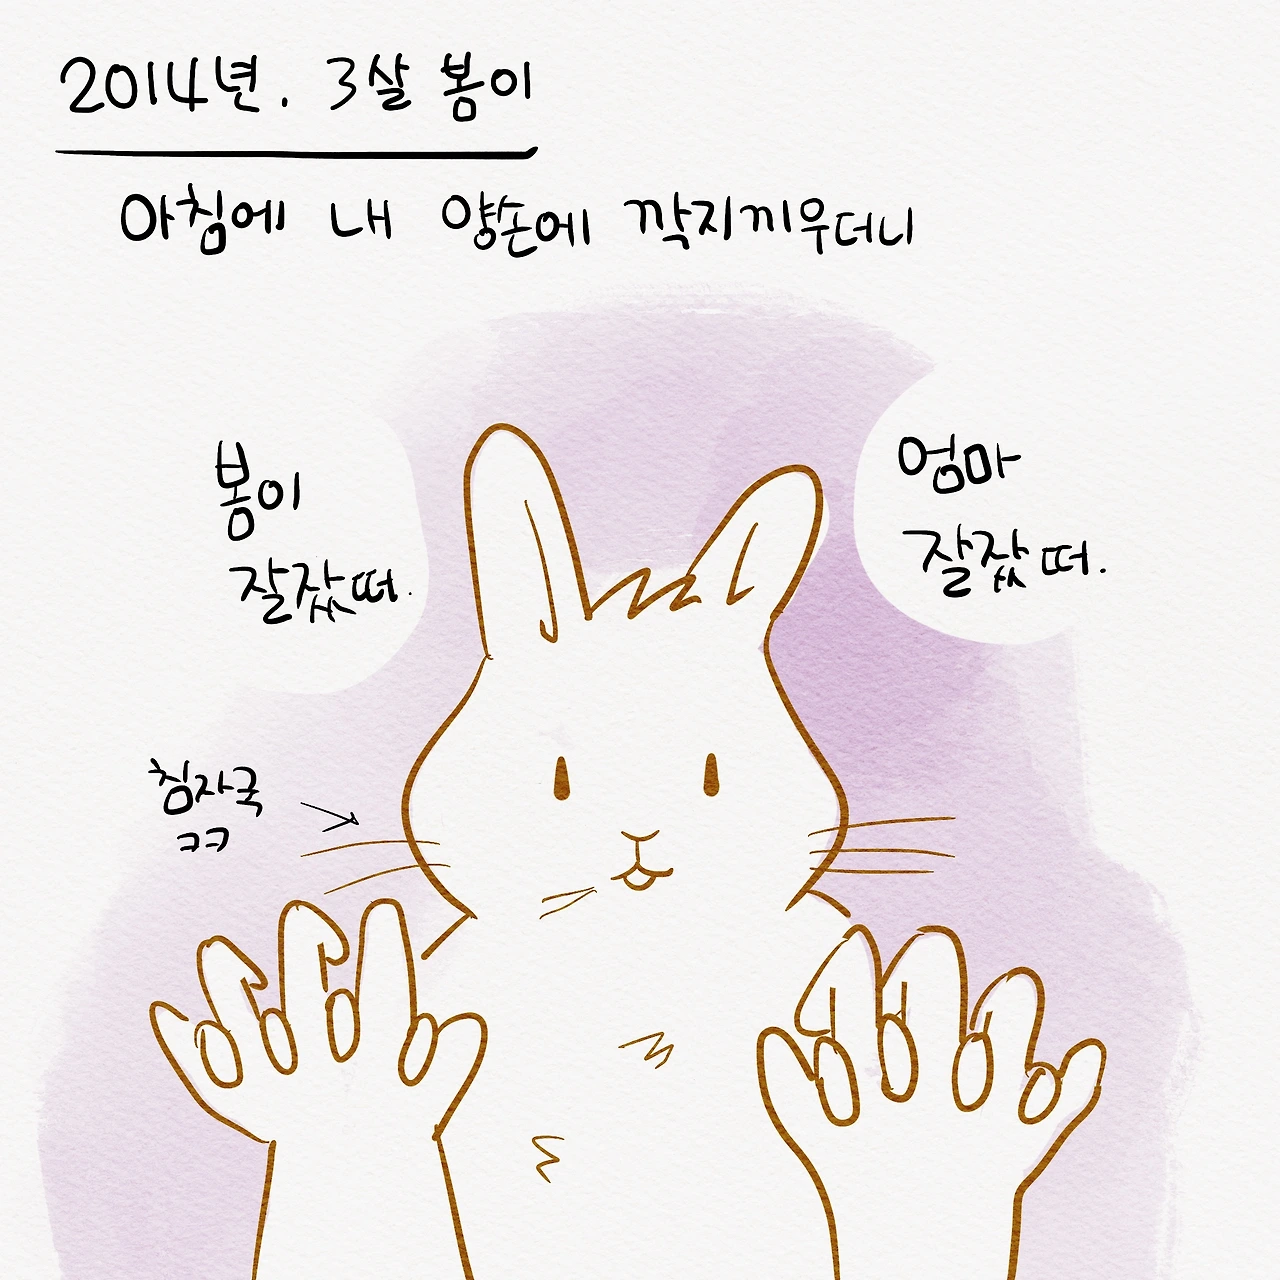 2014년. 3살 봄이
아침에 내 양손에 깍지끼우더니
봉이
잘잤떠.
엄마
잘잤떠.
침자국
ㅋㅋ